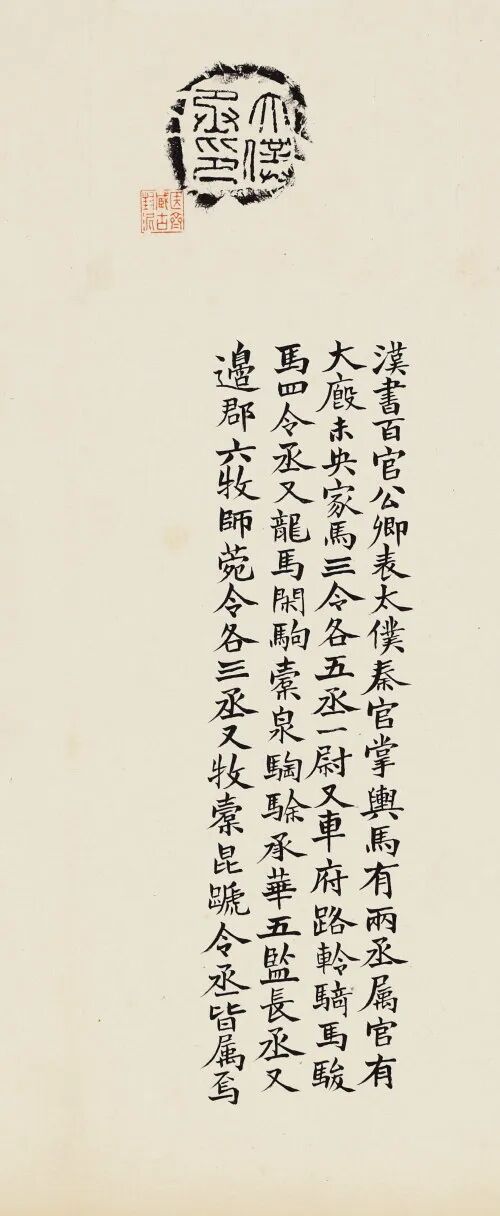 大僕丞印
簠齋藏古封泥
漢書百官公卿表太僕秦官掌輿馬有兩丞属官有
大廏未央家馬三令各五丞一尉又車府路軨騎馬駿
馬四令丞又龍馬閑駒橐泉騊駼承華五監長丞又
邊郡六牧師菀令各三丞又牧橐昆蹏令丞皆属焉